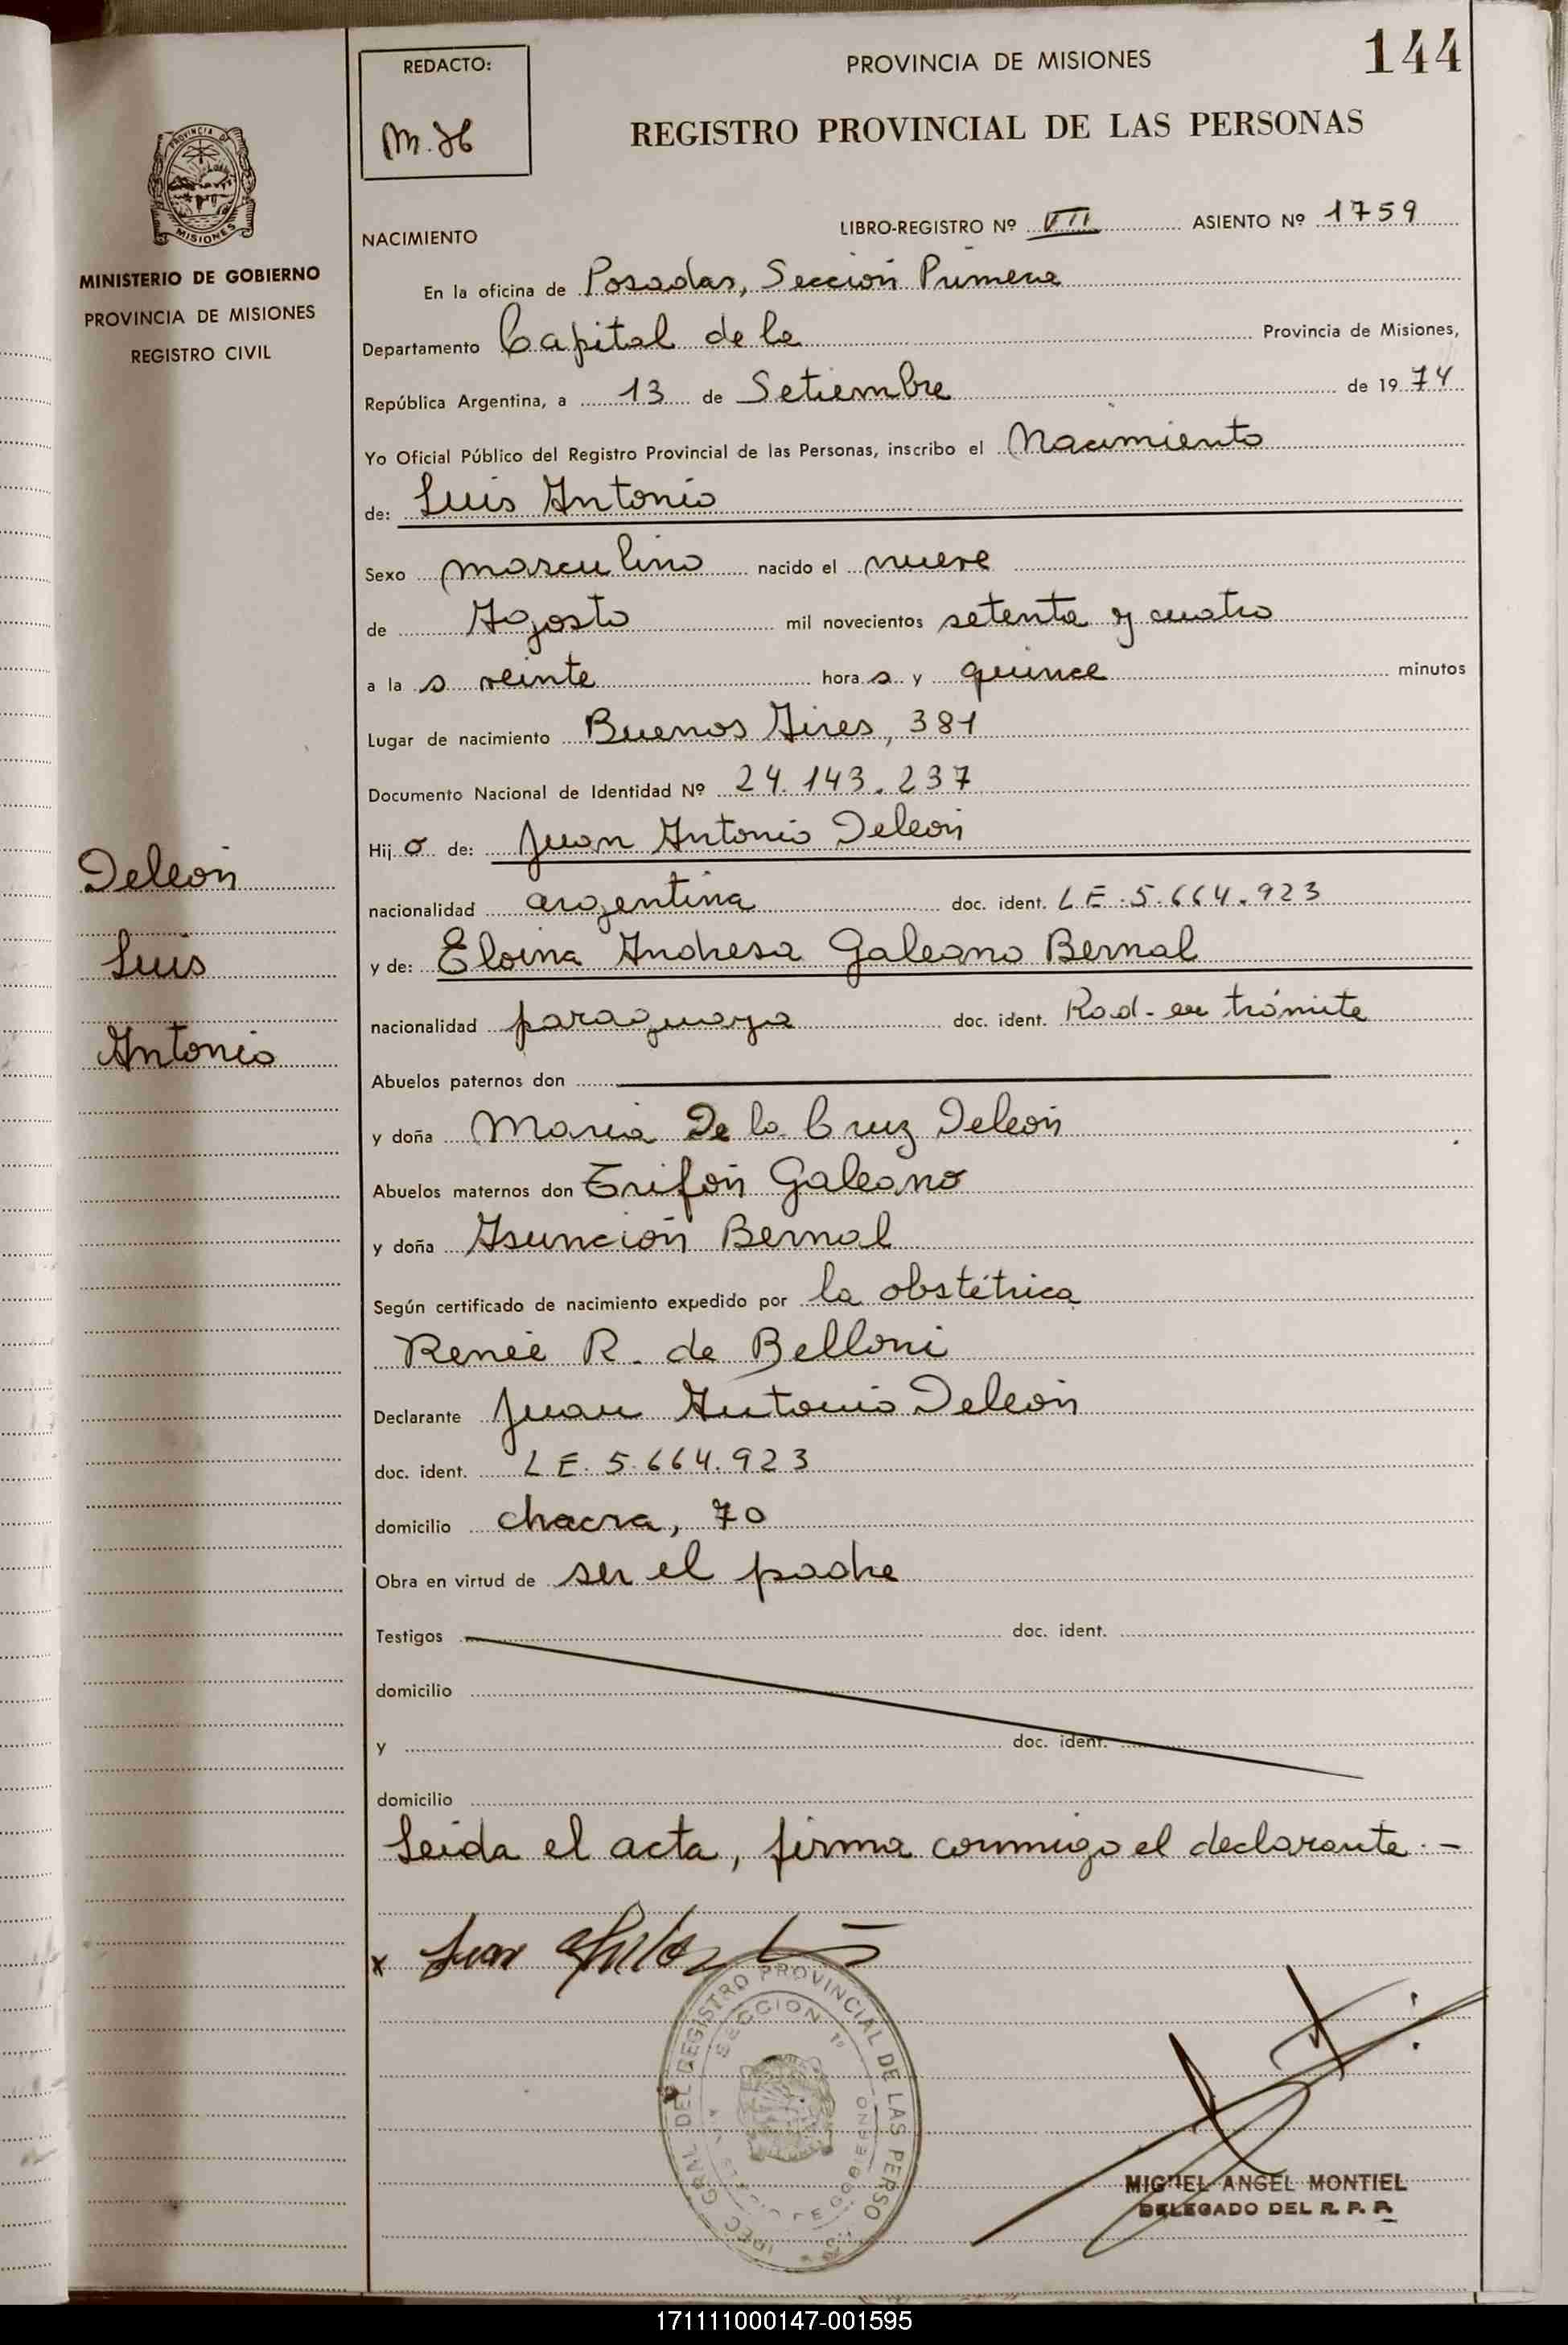 144
REDACTO:
M.H
PROVINCIA DE MISIONES
REGISTRO PROVINCIAL DE LAS PERSONAS
MISIONES
MINISTERIO DE GOBIERNO
PROVINCIA DE MISIONES
REGISTRO CIVIL
NACIMIENTO
LIBRO-REGISTRO Nº VII ASIENTO Nº 1759
En la oficina de Posadas, Sección Primera
Departamento Capital de la Provincia de Misiones,
República Argentina, a 13 de Setiembre de 1974
Yo Oficial Público del Registro Provincial de las Personas, inscribo el Nacimiento
de: Luis Antonio
Sexo masculino nacido el nueve
de Agosto mil novecientos setenta y cuatro
a la s veinte hora s y quince minutos
Lugar de nacimiento Buenos Aires, 381
Documento Nacional de Identidad Nº 24.143.237
Hij o de: Juan Antonio Deleón
nacionalidad argentina doc. ident. LE.5.664.923
y de: Eloina Andresa Galeano Bernal
nacionalidad paraguaya doc. ident. Rad. en trámite
Abuelos paternos don
y doña Maria De la Cruz Deleón
Abuelos maternos don Trifón Galeano
y doña Asunción Bernal
Según certificado de nacimiento expedido por la obstétrica
Reneé R. de Belloni
Declarante Juan Antonio Deleón
doc. ident. LE. 5.664.923
domicilio chacra, 70
Obra en virtud de ser el padre
Testigos doc. ident.
domicilio
y doc. ident.
domicilio
Leida el acta, firma conmigo el declarante.-
Deleón
Luis
Antonio
x Juan
GRAL DEL REGISTRO PROVINCIAL DE LAS PERSO
SECCION 1º
MIGUEL ANGEL MONTIEL
DELEGADO DEL R. P. P.
171111000147-001595